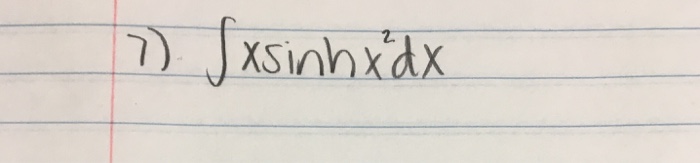 7) ∫xsinhx²dx